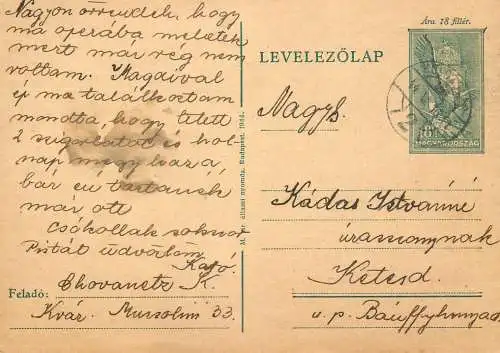 Nagyon örvendek, hogy
ma operába mehetek
mert már rég nem
voltam. Magdival
ép ma találkoztam
mondta, hogy letett
2 szigorlatot és hol-
nap megy haza
bár én tartanék
már ott
Csókollak sokszor
Pistát üdvözlöm
Kató
Feladó: Chovanetz K.
Kvár. Mussolini 33.
M. kir. állami nyomda, Budapest. 1944.
Ára 18 fillér.
LEVELEZŐLAP
18
MAGYARORSZÁG
Nagys.
Kádas Istvánné
úrasszonynak
Ketesd
u. p. Bánffyhunyad